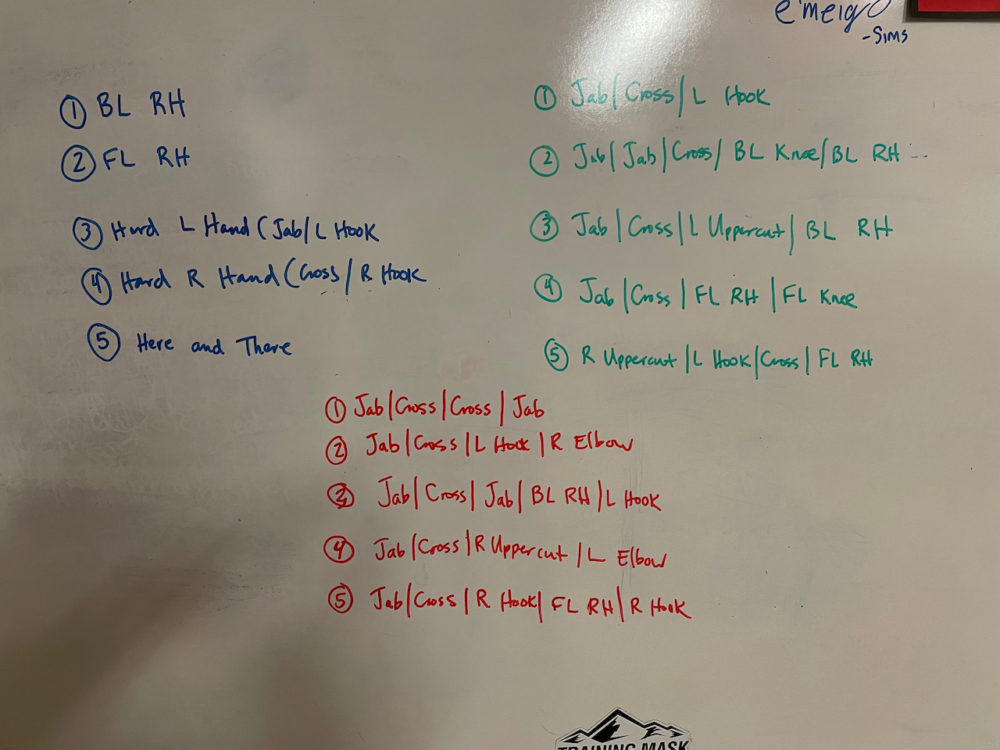 e'meigo
-Sims
① BL RH
② FL RH
③ Hard L Hand (Jab/L Hook
④ Hard R Hand (Cross/R Hook
⑤ Here and There
① Jab/Cross/L Hook
② Jab/Jab/Cross/BL Knee/BL RH --
③ Jab/Cross/L Uppercut/BL RH
④ Jab/Cross/FL RH/FL Knee
⑤ R Uppercut/L Hook/Cross/FL RH
① Jab/Cross/Cross/Jab
② Jab/Cross/L Hook/R Elbow
③ Jab/Cross/Jab/BL RH/L Hook
④ Jab/Cross/R Uppercut/L Elbow
⑤ Jab/Cross/R Hook/FL RH/R Hook
TRAINING MASK